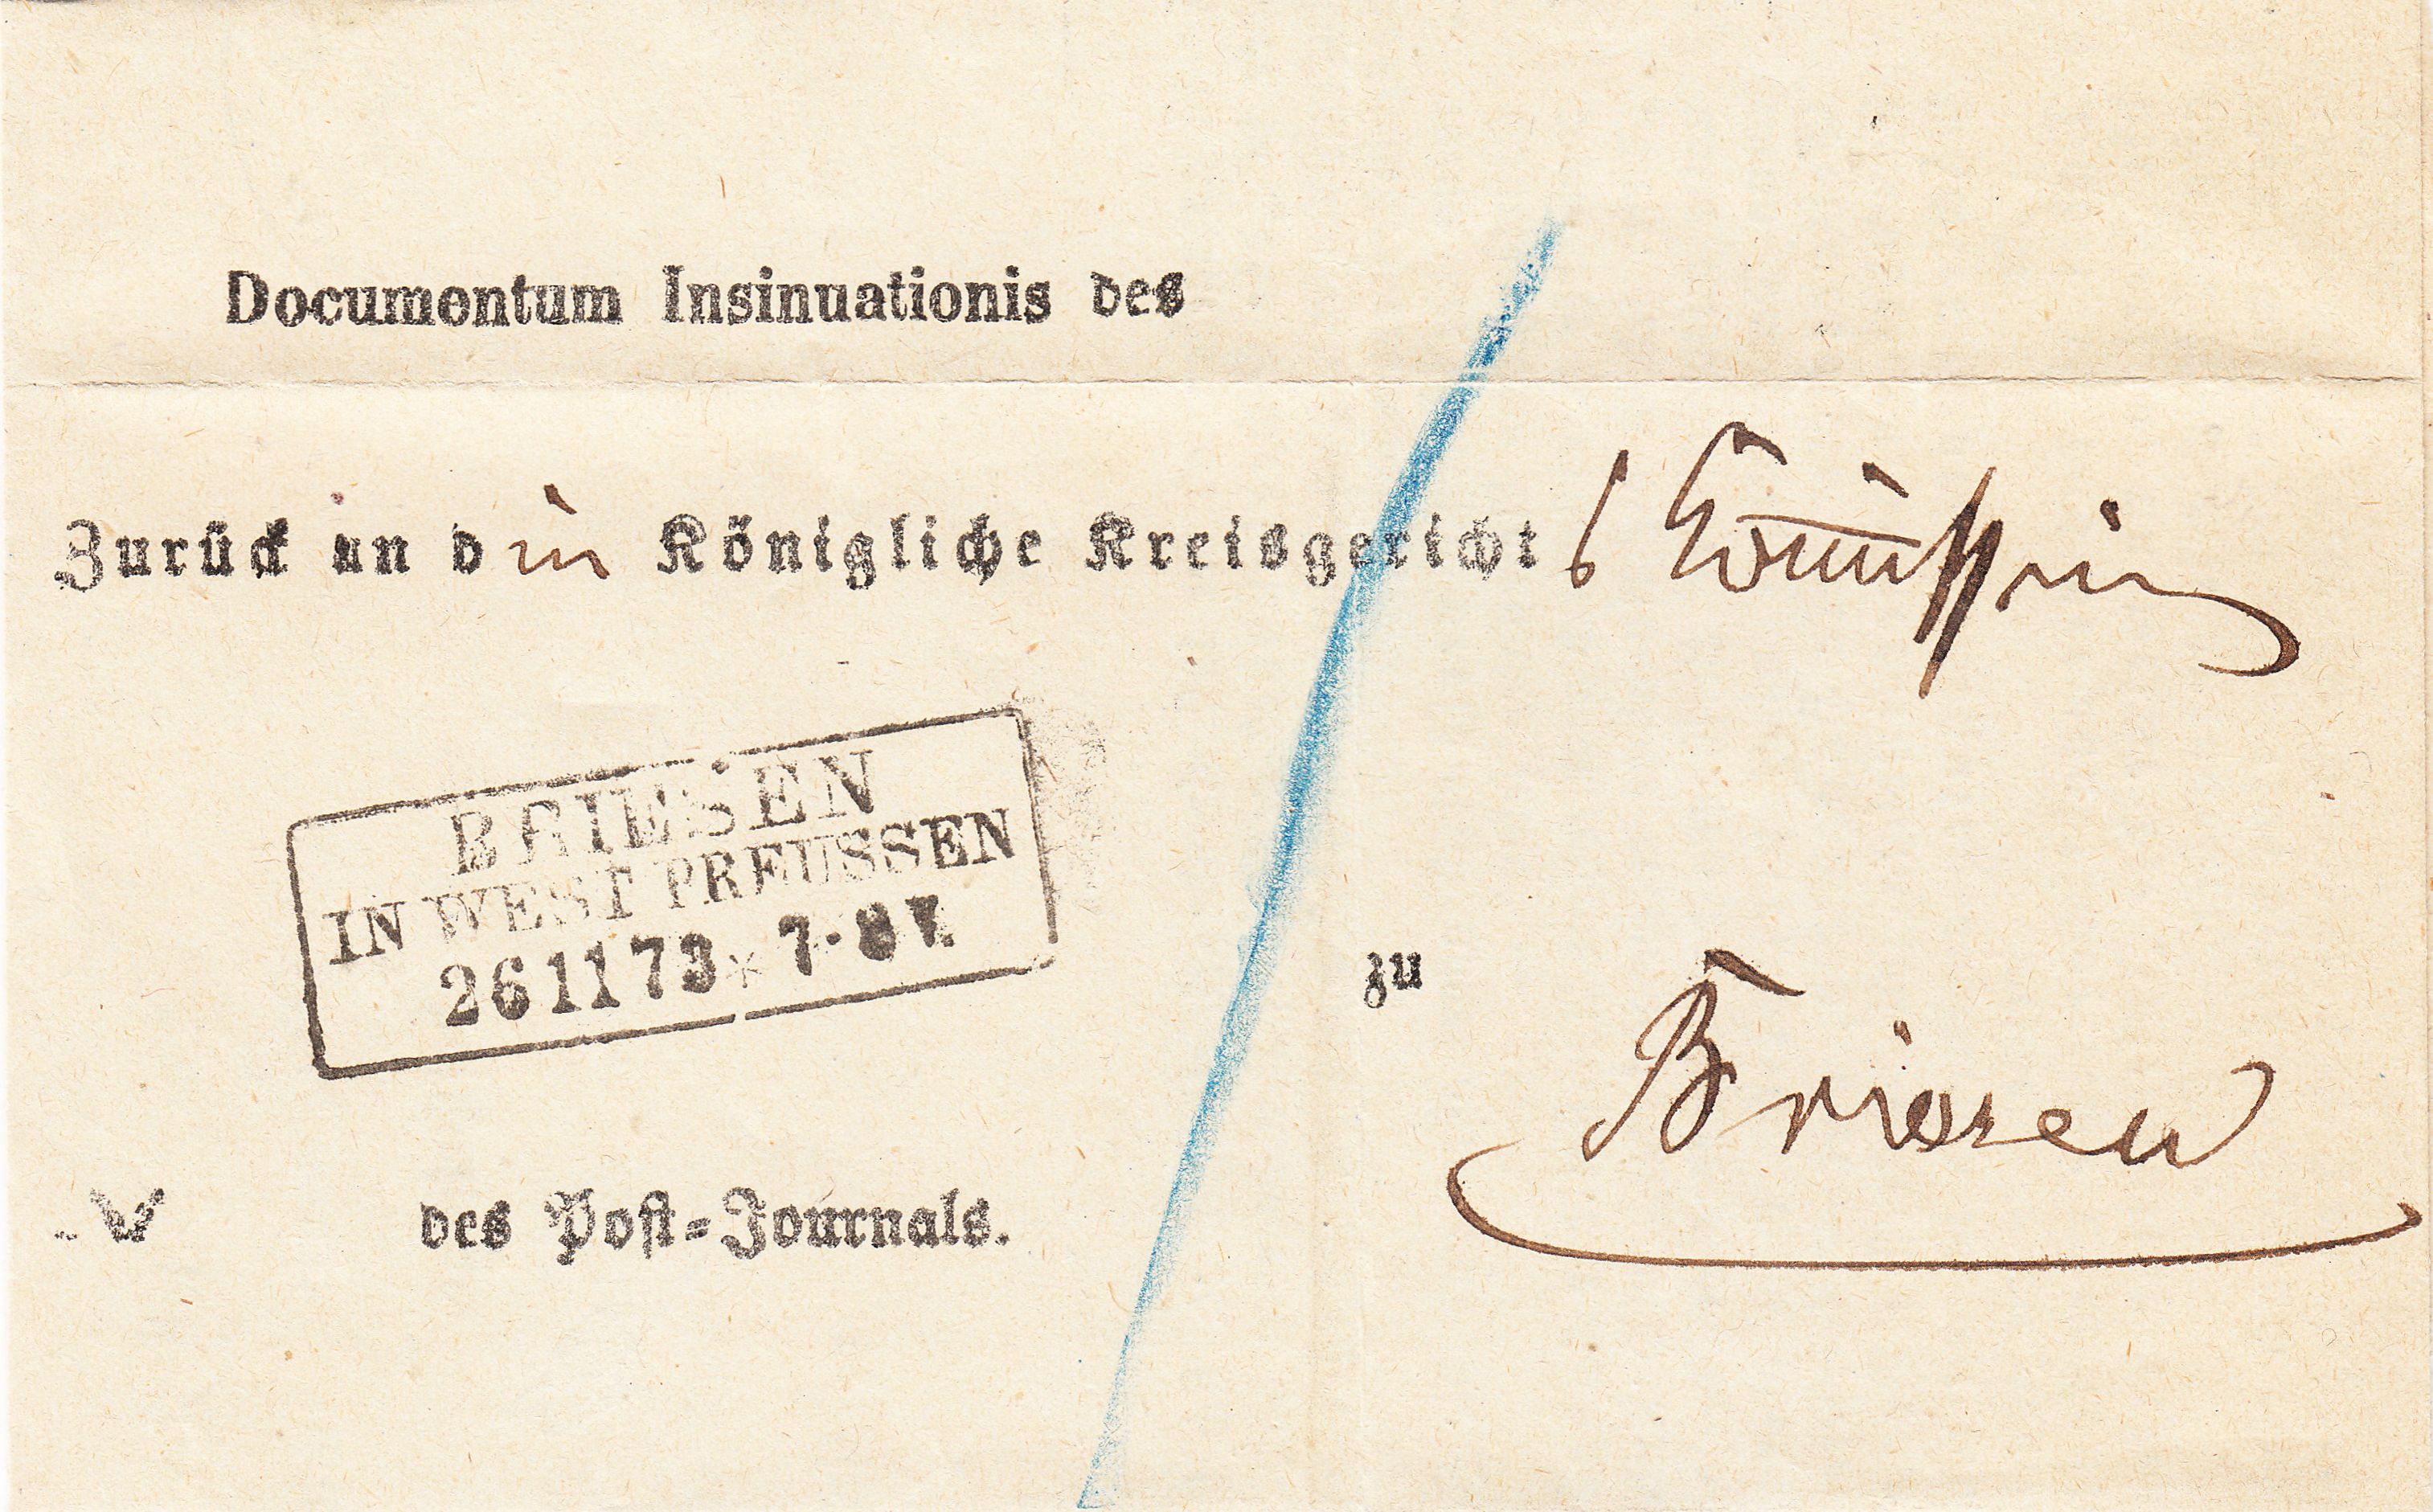 Documentum Insinuationis des
Zurück an die Königliche Kreisgerichts Kommission
BRIESEN
IN WEST PREUSSEN
26 11 73 * 7-8 V.
zu
Briesen
des Post-Journals.